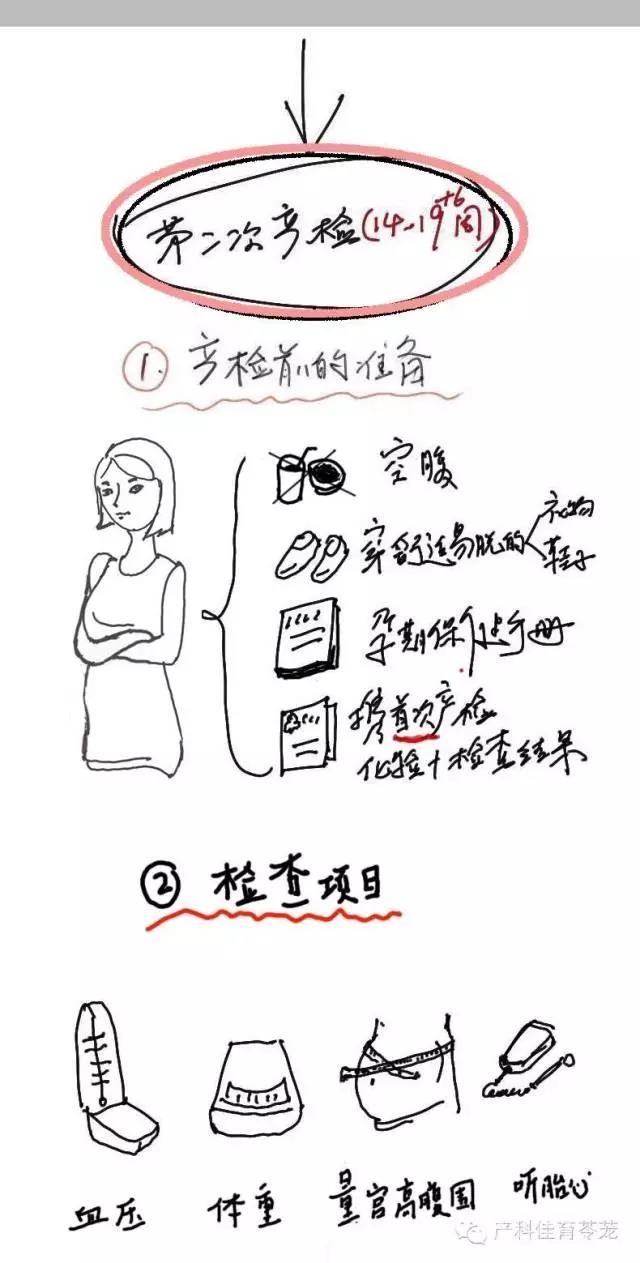 第二次产检(14-19+6周)
①.产检前的准备
空腹
穿舒适易脱的
衣物
鞋子
孕期保健手册
携首次产检
化验+检查结果
② 检查项目
血压
体重
量宫高腹围
听胎心
产科佳育苓茏